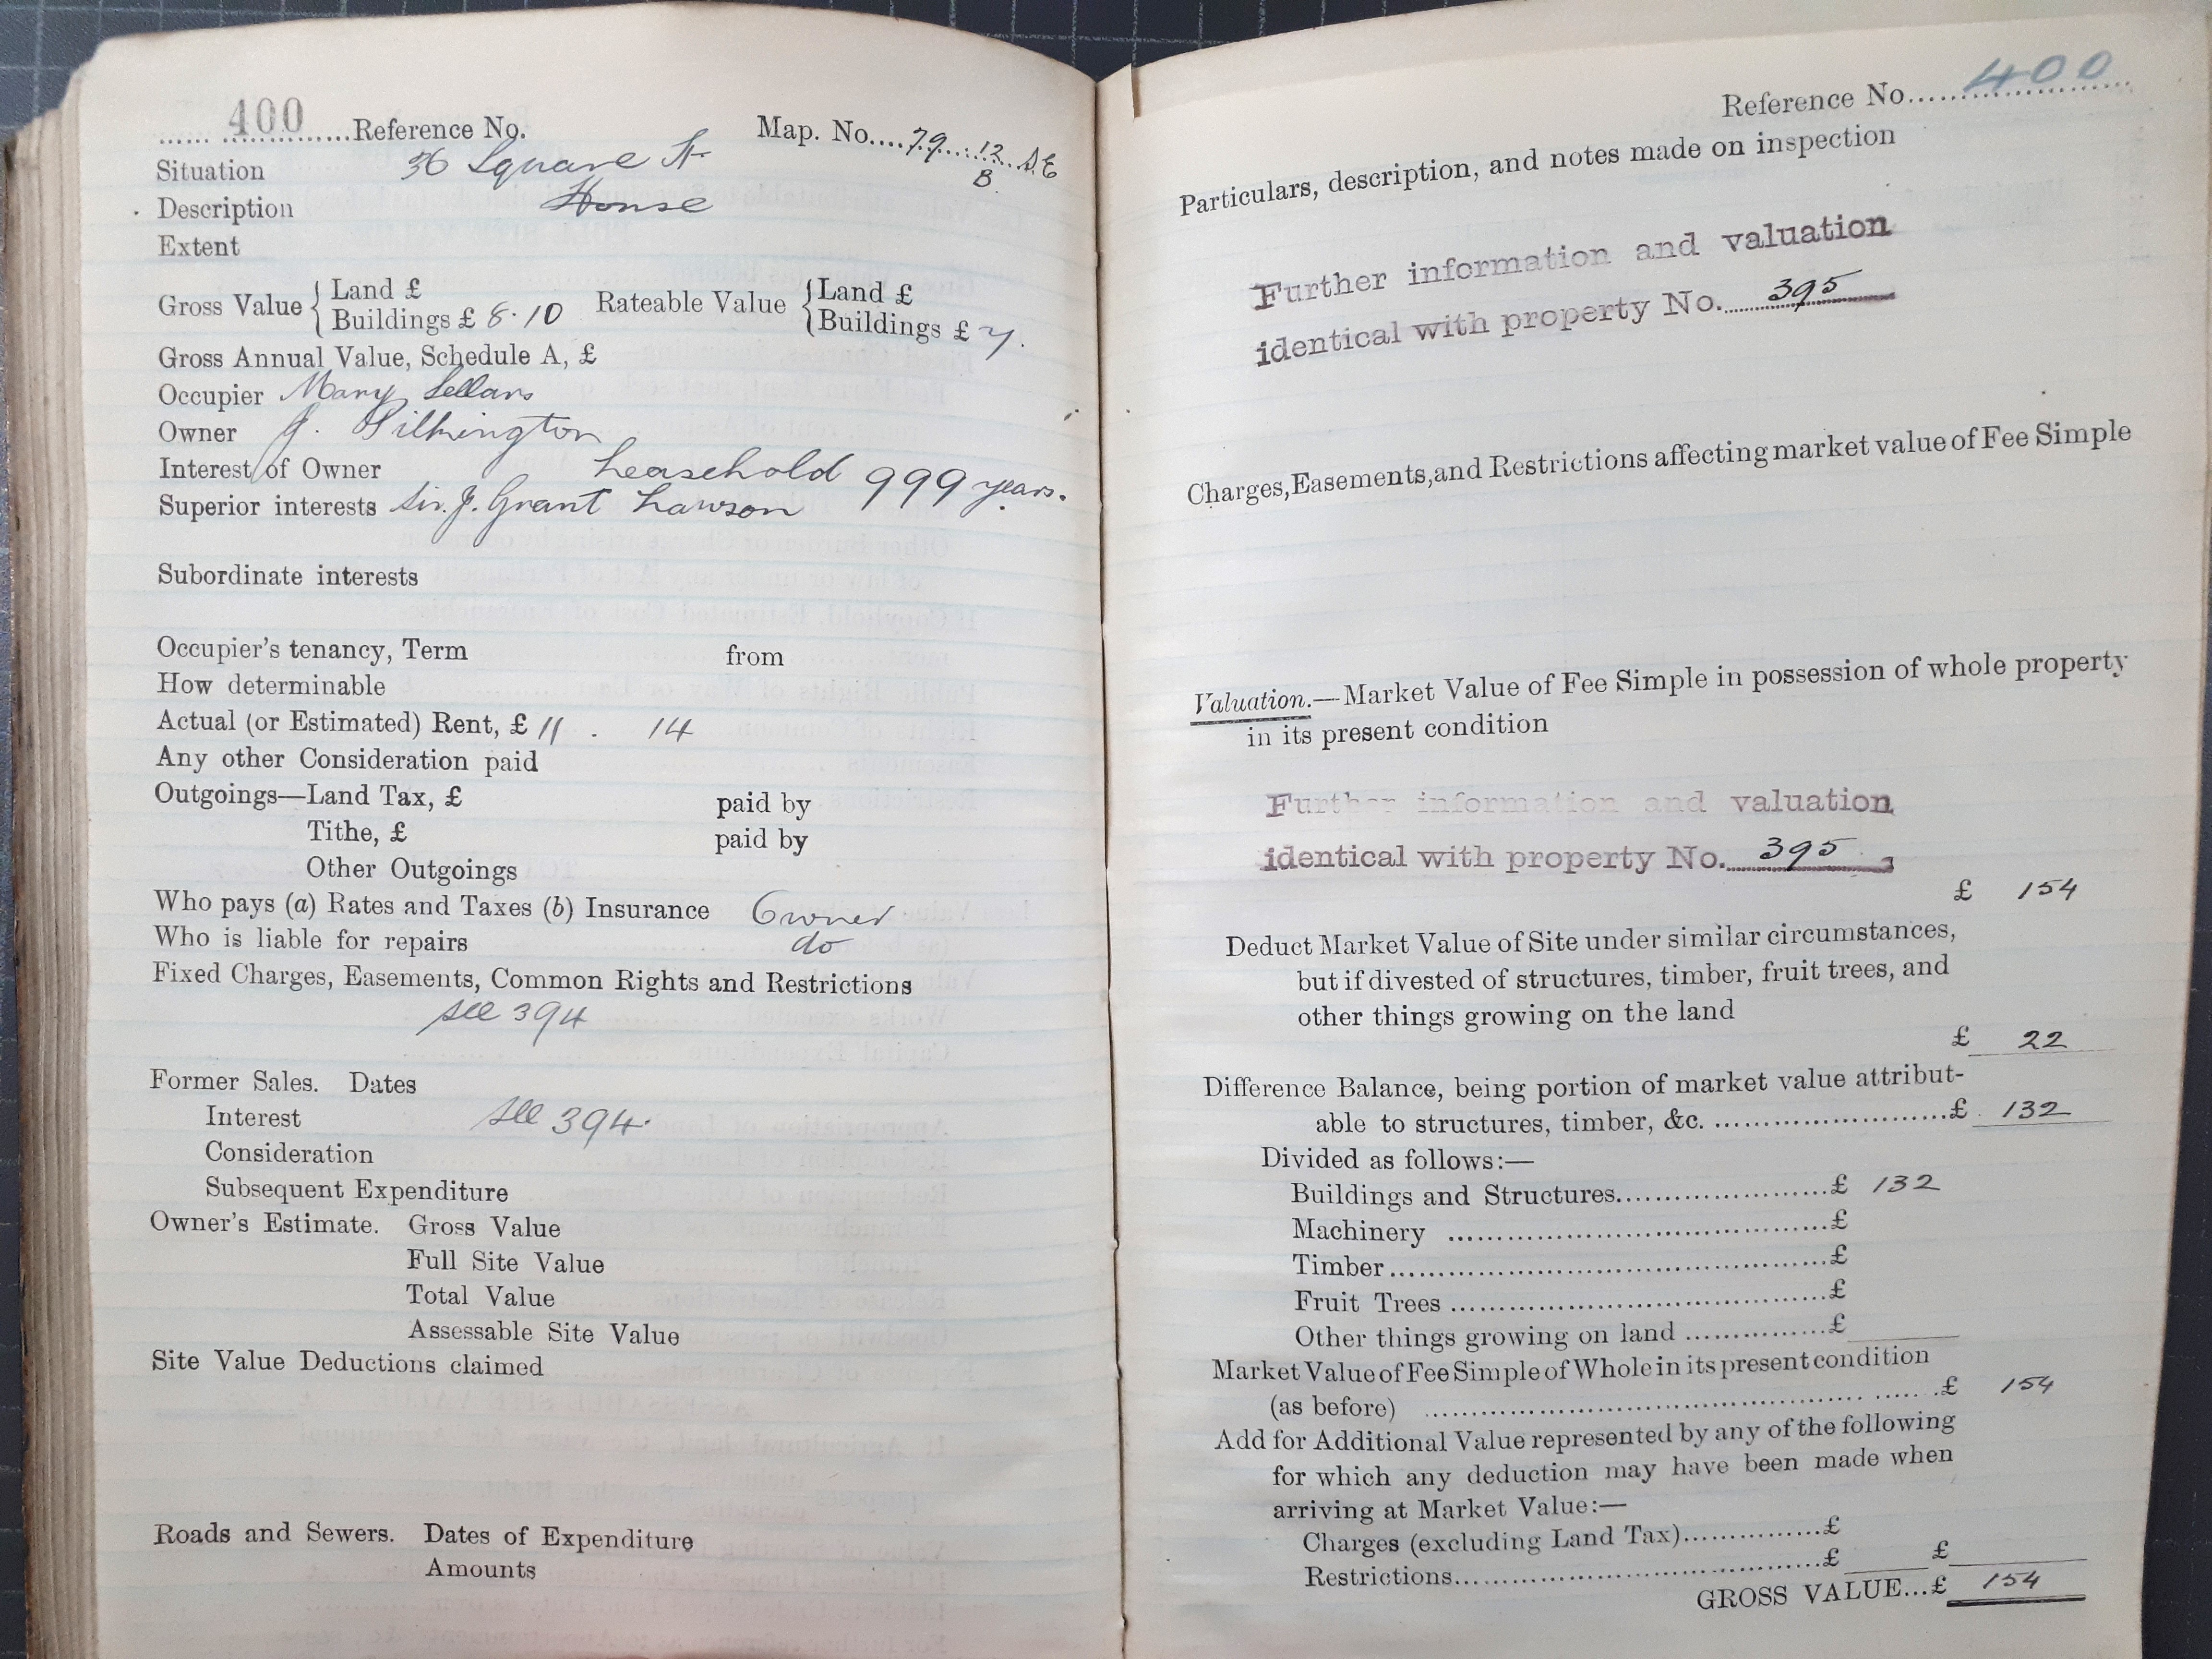 400 Reference No. Map. No. 79. 12 S.E
B.
Situation 36 Square St
Description House
Extent
Gross Value { Land £ Rateable Value { Land £
Buildings £ 8.10 Buildings £ 7.
Gross Annual Value, Schedule A, £
Occupier Mary Sellars
Owner J. Pilkington
Interest of Owner Leasehold 999 years.
Superior interests Sir. J. Grant Lawson
Subordinate interests
Occupier's tenancy, Term from
How determinable
Actual (or Estimated) Rent, £ 11 . 14
Any other Consideration paid
Outgoings—Land Tax, £ paid by
Tithe, £ paid by
Other Outgoings
Who pays (a) Rates and Taxes (b) Insurance Owner
Who is liable for repairs do
Fixed Charges, Easements, Common Rights and Restrictions
see 394
Former Sales. Dates
Interest see 394.
Consideration
Subsequent Expenditure
Owner's Estimate. Gross Value
Full Site Value
Total Value
Assessable Site Value
Site Value Deductions claimed
Roads and Sewers. Dates of Expenditure
Amounts
Reference No. 400
Particulars, description, and notes made on inspection
Further information and valuation
identical with property No. 395
Charges, Easements, and Restrictions affecting market value of Fee Simple
Valuation.—Market Value of Fee Simple in possession of whole property
in its present condition
Further information and valuation
identical with property No. 395
£ 154
Deduct Market Value of Site under similar circumstances,
but if divested of structures, timber, fruit trees, and
other things growing on the land
£ 22
Difference Balance, being portion of market value attribut-
able to structures, timber, &c. £ 132
Divided as follows:—
Buildings and Structures £ 132
Machinery £
Timber £
Fruit Trees £
Other things growing on land £
Market Value of Fee Simple of Whole in its present condition
(as before) £ 154
Add for Additional Value represented by any of the following
for which any deduction may have been made when
arriving at Market Value:—
Charges (excluding Land Tax) £
Restrictions £ £
GROSS VALUE...£ 154